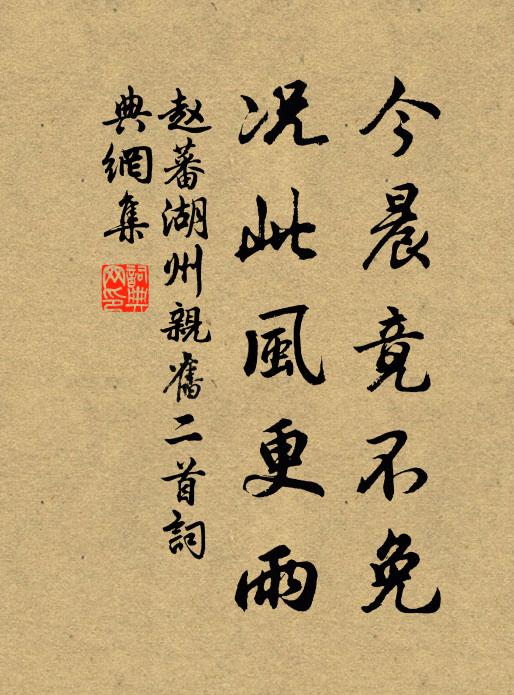 今晨竟不免
况此風更雨
赵蕃湖州親舊二首詞
典網集
詞典网印